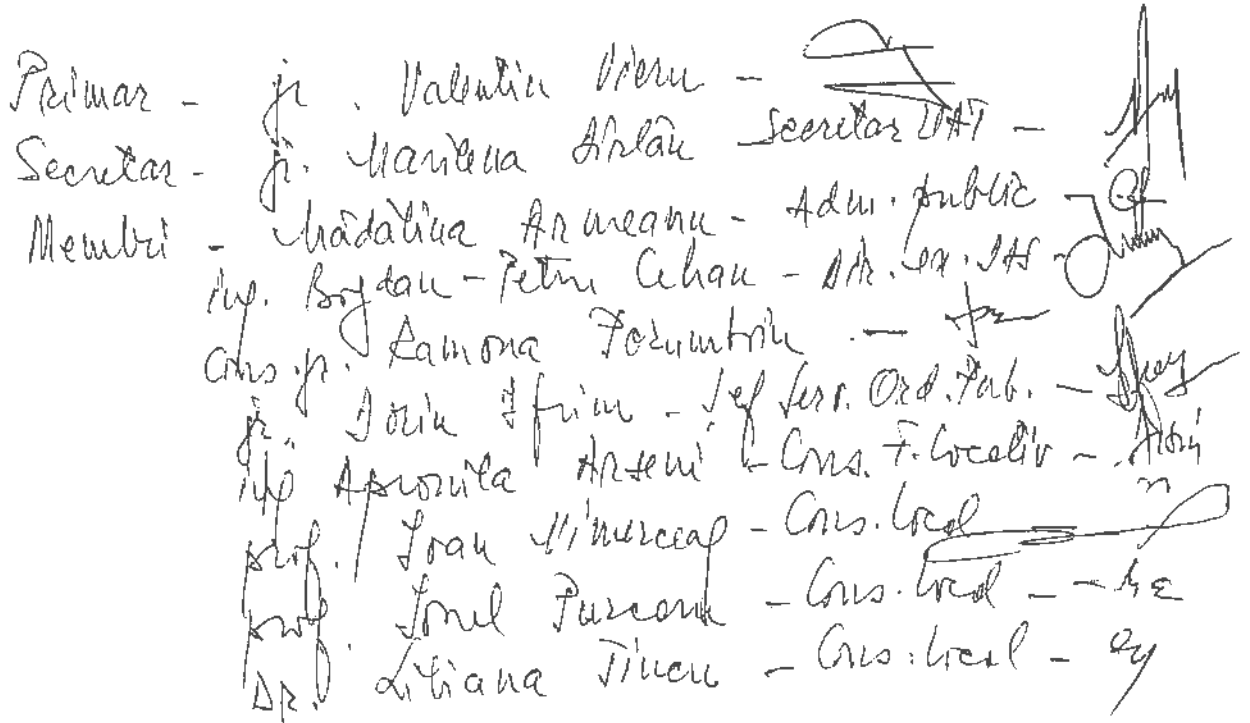 Primar - jr. Valentin Vieru -
Secretar - jr. Marilena Dîrlău - Secretar UAT -
Membri - Mădălina Armeanu - Adm. public -
ing. Bogdan-Petru Cehan - Dir. ex. DAS -
Cons. jr. Ramona Porumbriu -
jr. Dorin Ifrim - Șef Serv. Ord. Pub. -
ing. Apronila Arseni - Cons. F. Locativ -
prof. Ioan - Cons. local
prof. Ionel Purceanu - Cons. local -
Dr. Liliana Tincu - Cons. local -